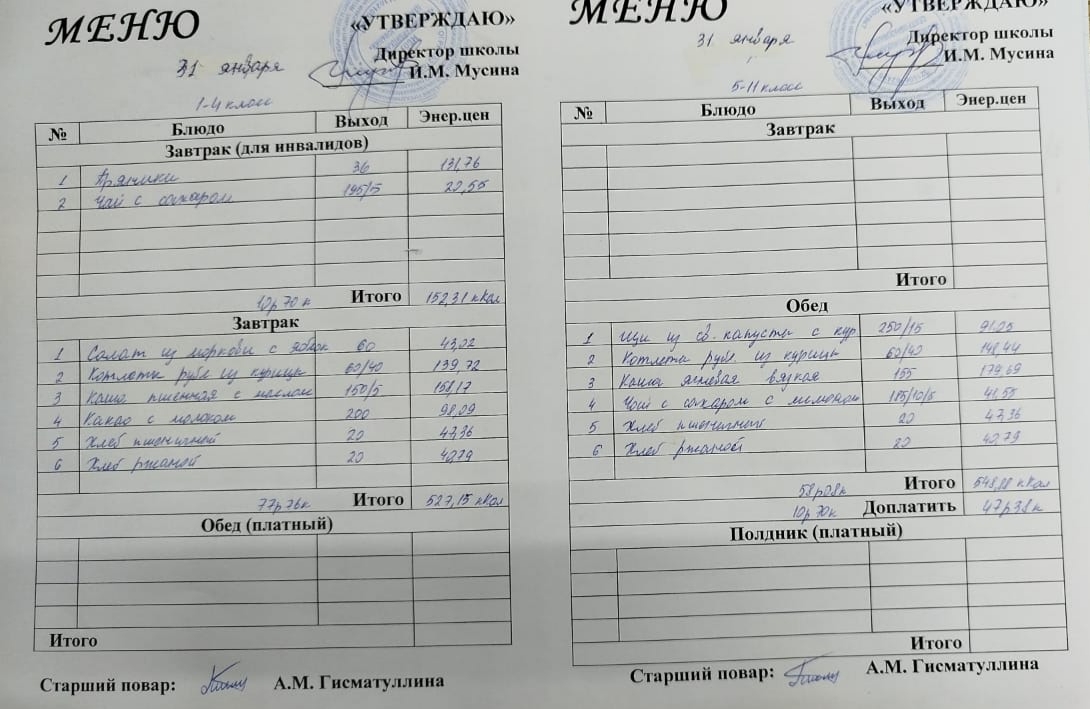 МЕНЮ
«УТВЕРЖДАЮ»
Директор школы
31 января
И.М. Мусина
1-4 класс
№ Блюдо Выход Энер.цен
Завтрак (для инвалидов)
1 Пряники 36 131,76
2 Чай с сахаром 195/5 20,55
10р 70к Итого 152,31 кКал
Завтрак
1 Салат из моркови с яблок 60 43,02
2 Котлеты рубл из курицы 60/40 139,72
3 Каша пшенная с маслом 150/5 158,17
4 Какао с молоком 200 98,09
5 Хлеб пшеничный 20 47,36
6 Хлеб ржаной 20 40,79
77р 76к Итого 527,15 кКал
Обед (платный)
Итого
Старший повар: А.М. Гисматуллина
МЕНЮ
«УТВЕРЖДАЮ»
Директор школы
31 января
И.М. Мусина
5-11 класс
№ Блюдо Выход Энер.цен
Завтрак
Итого
Обед
1 Щи из св. капусты с кур 250/15 91,05
2 Котлета рубл из курицы 60/40 148,44
3 Каша ячневая вязкая 155 179,69
4 Чай с сахаром с лимоном 185/10/5 41,55
5 Хлеб пшеничный 20 47,36
6 Хлеб ржаной 20 40,79
58р08к Итого 548,88 кКал
10р 70к Доплатить 47р38к
Полдник (платный)
Итого
Старший повар: А.М. Гисматуллина